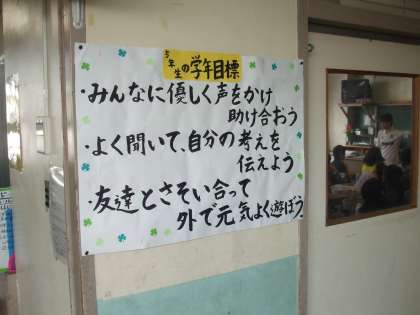 5年生の学年目標
・みんなに優しく声をかけ
助け合おう
・よく聞いて、自分の考えを
伝えよう
・友達とさそい合って
外で元気よく遊ぼう。